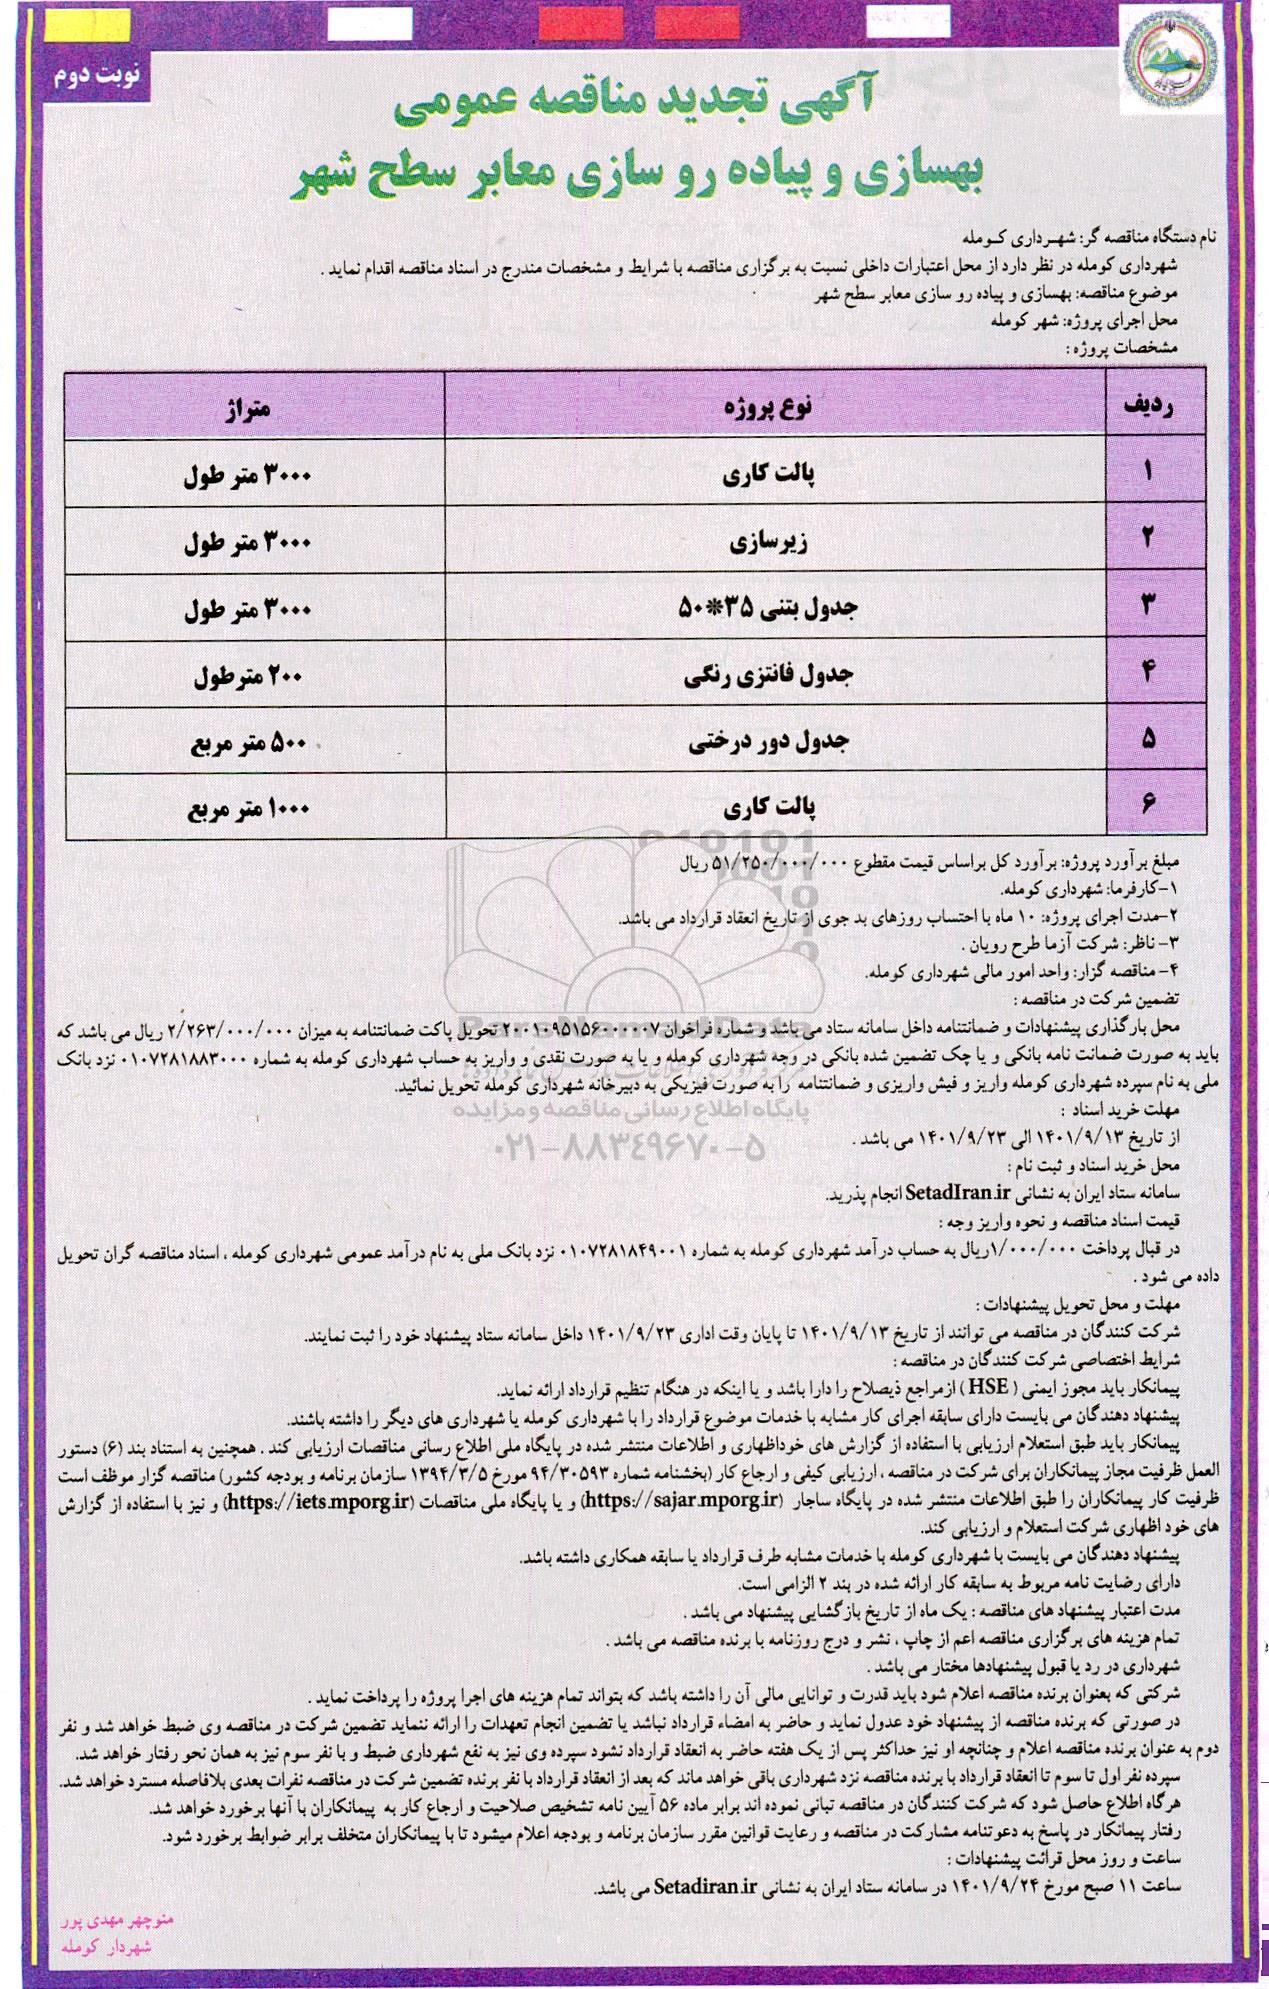 نوبت دوم
آگهی تجدید مناقصه عمومی
بهسازی و پیاده رو سازی معابر سطح شهر
نام دستگاه مناقصه گر: شهرداری کومله
شهرداری کومله در نظر دارد از محل اعتبارات داخلی نسبت به برگزاری مناقصه با شرایط و مشخصات مندرج در اسناد مناقصه اقدام نماید .
موضوع مناقصه: بهسازی و پیاده رو سازی معابر سطح شهر
محل اجرای پروژه: شهر کومله
مشخصات پروژه :
ردیف نوع پروژه متراژ
۱ پالت کاری ۳۰۰۰ متر طول
۲ زیرسازی ۳۰۰۰ متر طول
۳ جدول بتنی ۳۵*۵۰ ۳۰۰۰ متر طول
۴ جدول فانتزی رنگی ۲۰۰ مترطول
۵ جدول دور درختی ۵۰۰ متر مربع
۶ پالت کاری ۱۰۰۰ متر مربع
مبلغ برآورد پروژه: برآورد کل براساس قیمت مقطوع ۵۱/۲۵۰/۰۰۰/۰۰۰ ریال
۱-کارفرما: شهرداری کومله.
۲-مدت اجرای پروژه: ۱۰ ماه با احتساب روزهای بد جوی از تاریخ انعقاد قرارداد می باشد.
۳- ناظر: شرکت آزما طرح رویان .
۴- مناقصه گزار: واحد امور مالی شهرداری کومله.
تضمین شرکت در مناقصه :
محل بارگذاری پیشنهادات و ضمانتنامه داخل سامانه ستاد می باشد و شماره فراخوان ۲۰۰۱۰۹۵۱۵۶۰۰۰۰۰۷ تحویل پاکت ضمانتنامه به میزان ۲/۲۶۳/۰۰۰/۰۰۰ ریال می باشد که
باید به صورت ضمانت نامه بانکی و یا چک تضمین شده بانکی در وجه شهرداری کومله و یا به صورت نقدی و واریز به حساب شهرداری کومله به شماره ۰۱۰۷۲۸۱۸۸۳۰۰۰ نزد بانک
ملی به نام سپرده شهرداری کومله واریز و فیش واریزی و ضمانتنامه را به صورت فیزیکی به دبیرخانه شهرداری کومله تحویل نمائید.
پایگاه اطلاع رسانی مناقصه و مزایده
مهلت خرید اسناد :
از تاریخ ۱۴۰۱/۹/۱۳ الی ۱۴۰۱/۹/۲۳ می باشد .
۰۲۱-۸۸۳۴۹۶۷۰-۵
محل خرید اسناد و ثبت نام :
سامانه ستاد ایران به نشانی SetadIran.ir انجام پذرید.
قیمت اسناد مناقصه و نحوه واریز وجه :
در قبال پرداخت ۱/۰۰۰/۰۰۰ریال به حساب درآمد شهرداری کومله به شماره ۰۱۰۷۲۸۱۸۴۹۰۰۱ نزد بانک ملی به نام درآمد عمومی شهرداری کومله ، اسناد مناقصه گران تحویل
داده می شود .
مهلت و محل تحویل پیشنهادات :
شرکت کنندگان در مناقصه می توانند از تاریخ ۱۴۰۱/۹/۱۳ تا پایان وقت اداری ۱۴۰۱/۹/۲۳ داخل سامانه ستاد پیشنهاد خود را ثبت نمایند.
شرایط اختصاصی شرکت کنندگان در مناقصه :
پیمانکار باید مجوز ایمنی ( HSE ) ازمراجع ذیصلاح را دارا باشد و یا اینکه در هنگام تنظیم قرارداد ارائه نماید.
پیشنهاد دهندگان می بایست دارای سابقه اجرای کار مشابه با خدمات موضوع قرارداد را با شهرداری کومله یا شهرداری های دیگر را داشته باشند.
پیمانکار باید طبق استعلام ارزیابی با استفاده از گزارش های خوداظهاری و اطلاعات منتشر شده در پایگاه ملی اطلاع رسانی مناقصات ارزیابی کند . همچنین به استناد بند (۶) دستور
العمل ظرفیت مجاز پیمانکاران برای شرکت در مناقصه ، ارزیابی کیفی و ارجاع کار (بخشنامه شماره ۹۴/۳۰۵۹۳ مورخ ۱۳۹۴/۳/۵ سازمان برنامه و بودجه کشور) مناقصه گزار موظف است
ظرفیت کار پیمانکاران را طبق اطلاعات منتشر شده در پایگاه ساجار (https://sajar.mporg.ir) و یا پایگاه ملی مناقصات (https://iets.mporg.ir) و نیز با استفاده از گزارش
های خود اظهاری شرکت استعلام و ارزیابی کند.
پیشنهاد دهندگان می بایست با شهرداری کومله با خدمات مشابه طرف قرارداد یا سابقه همکاری داشته باشد.
دارای رضایت نامه مربوط به سابقه کار ارائه شده در بند ۲ الزامی است.
مدت اعتبار پیشنهاد های مناقصه : یک ماه از تاریخ بازگشایی پیشنهاد می باشد .
تمام هزینه های برگزاری مناقصه اعم از چاپ ، نشر و درج روزنامه با برنده مناقصه می باشد .
شهرداری در رد یا قبول پیشنهادها مختار می باشد .
شرکتی که بعنوان برنده مناقصه اعلام شود باید قدرت و توانایی مالی آن را داشته باشد که بتواند تمام هزینه های اجرا پروژه را پرداخت نماید .
در صورتی که برنده مناقصه از پیشنهاد خود عدول نماید و حاضر به امضاء قرارداد نباشد یا تضمین انجام تعهدات را ارائه ننماید تضمین شرکت در مناقصه وی ضبط خواهد شد و نفر
دوم به عنوان برنده مناقصه اعلام و چنانچه او نیز حداکثر پس از یک هفته حاضر به انعقاد قرارداد نشود سپرده وی نیز به نفع شهرداری ضبط و با نفر سوم نیز به همان نحو رفتار خواهد شد.
سپرده نفر اول تا سوم تا انعقاد قرارداد با برنده مناقصه نزد شهرداری باقی خواهد ماند که بعد از انعقاد قرارداد با نفر برنده تضمین شرکت در مناقصه نفرات بعدی بلافاصله مسترد خواهد شد.
هرگاه اطلاع حاصل شود که شرکت کنندگان در مناقصه تبانی نموده اند برابر ماده ۵۶ آیین نامه تشخیص صلاحیت و ارجاع کار به پیمانکاران با آنها برخورد خواهد شد.
رفتار پیمانکار در پاسخ به دعوتنامه مشارکت در مناقصه و رعایت قوانین مقرر سازمان برنامه و بودجه اعلام میشود تا با پیمانکاران متخلف برابر ضوابط برخورد شود.
ساعت و روز محل قرائت پیشنهادات :
ساعت ۱۱ صبح مورخ ۱۴۰۱/۹/۲۴ در سامانه ستاد ایران به نشانی Setadiran.ir می باشد.
منوچهر مهدی پور
شهردار کومله